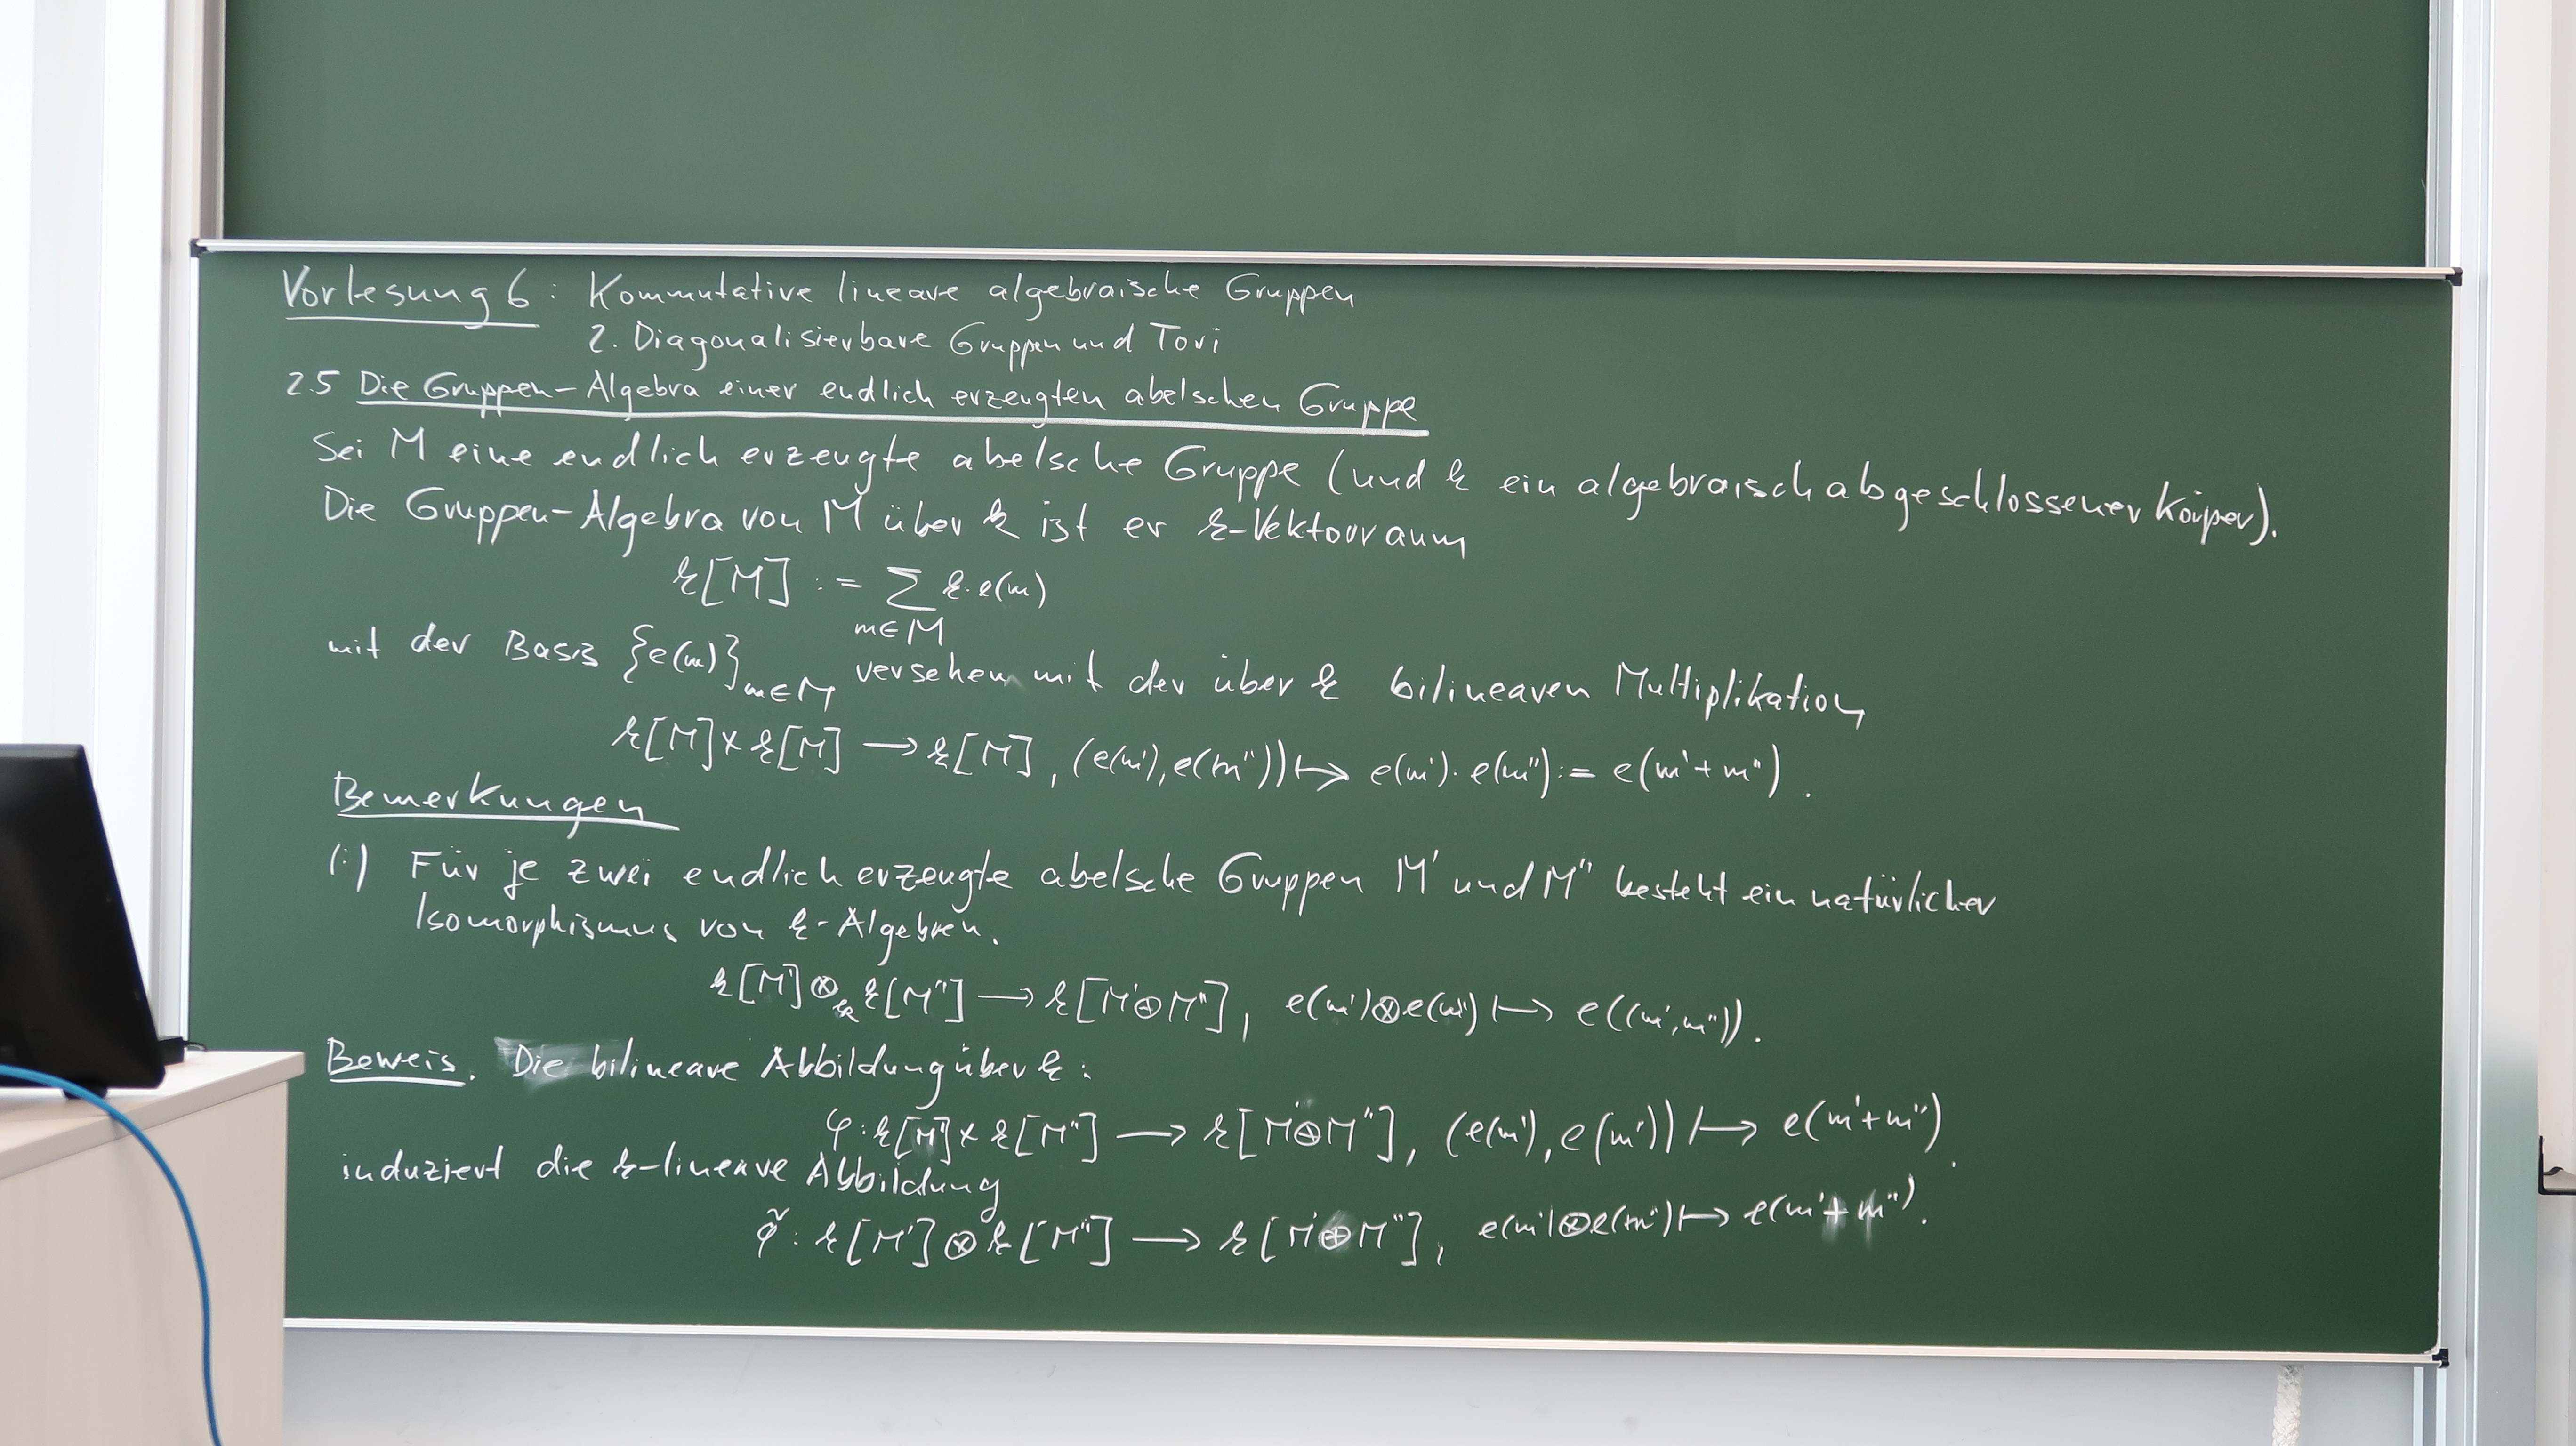 Vorlesung 6: Kommutative lineare algebraische Gruppen
2. Diagonalisierbare Gruppen und Tori
2.5 Die Gruppen-Algebra einer endlich erzeugten abelschen Gruppe
Sei M eine endlich erzeugte abelsche Gruppe (und k ein algebraisch abgeschlossener Körper).
Die Gruppen-Algebra von M über k ist er k-Vektorraum
k[M] := ∑ k·e(m)
m∈M
mit der Basis {e(m)}_{m∈M} versehen mit der über k bilinearen Multiplikation
k[M]×k[M] → k[M], (e(m'),e(m'')) ↦ e(m')·e(m'') := e(m'+m'').
Bemerkungen
(i) Für je zwei endlich erzeugte abelsche Gruppen M' und M'' besteht ein natürlicher
Isomorphismus von k-Algebren.
k[M']⊗_k k[M''] → k[M'⊕M''], e(m')⊗e(m'') ↦ e((m',m'')).
Beweis. Die bilineare Abbildung über k:
φ: k[M']×k[M''] → k[M'⊕M''], (e(m'),e(m'')) ↦ e(m'+m'').
induziert die k-lineare Abbildung
φ̃: k[M']⊗k[M''] → k[M'⊕M''], e(m')⊗e(m'') ↦ e(m'+m'').